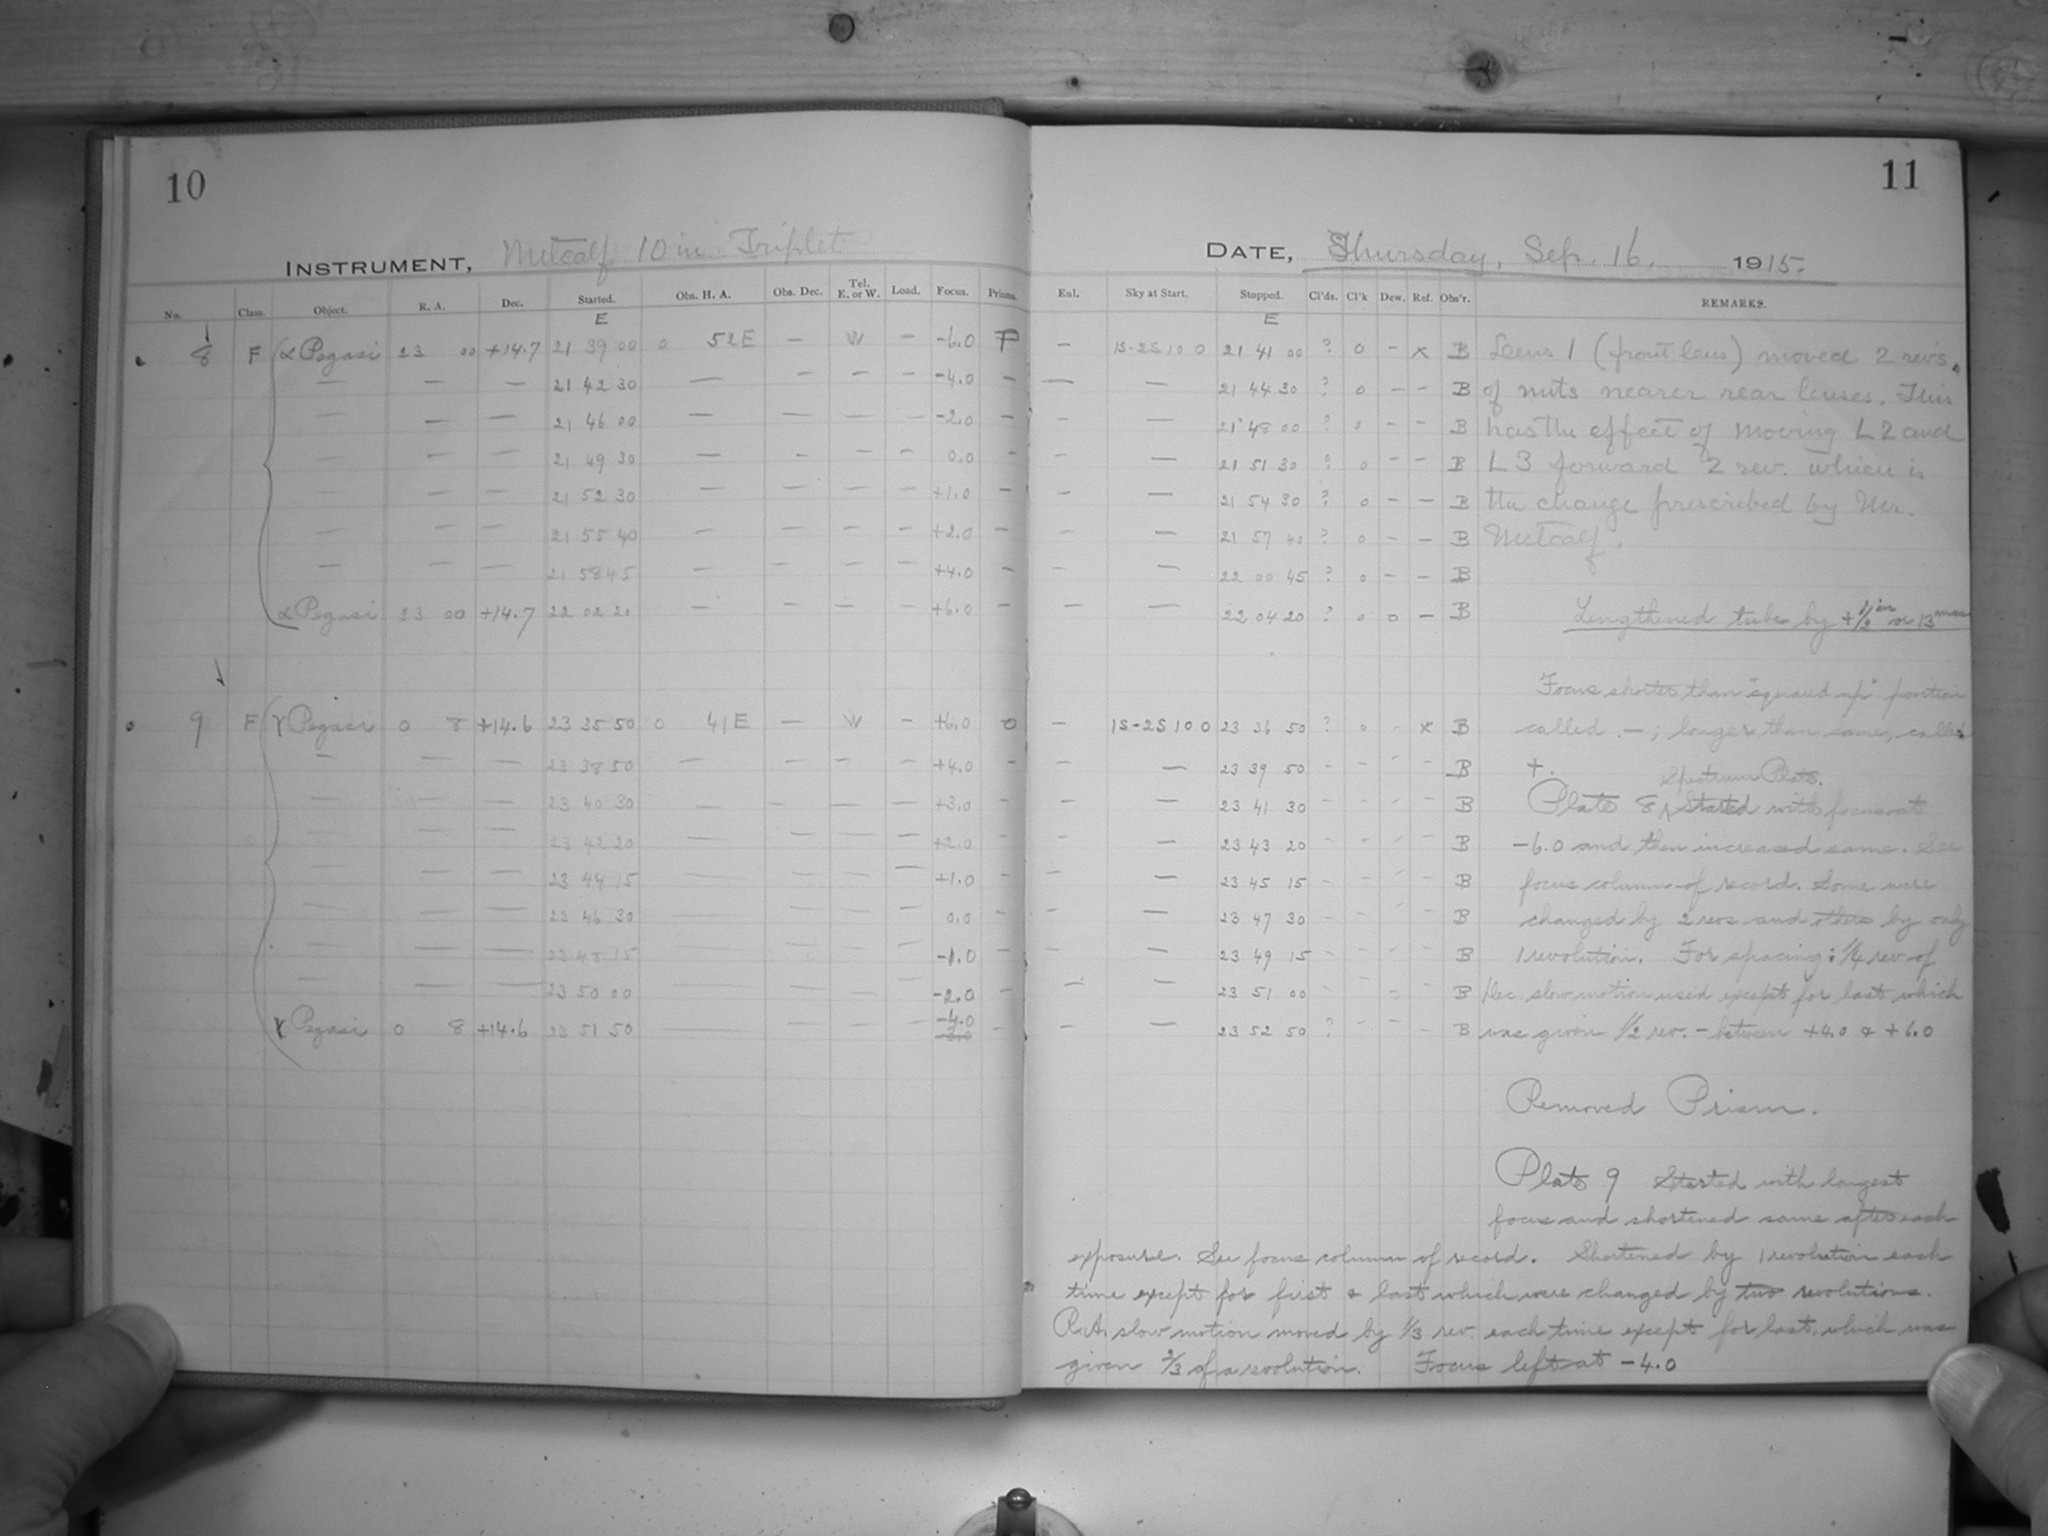 10
INSTRUMENT, Metcalf 10 in Triplet
No. Class. Object. R. A. Dec. Started. Obs. H. A. Obs. Dec. Tel. E. or W. Load. Focus. Prisms.
E
8 F α Pegasi 23 00 +14.7 21 39 00 0 52E — W — -6.0 P
— — — 21 42 30 — — — — -4.0 —
— — — 21 46 00 — — — — -2.0 —
— — — 21 49 30 — — — — 0.0 —
— — — 21 52 30 — — — — +1.0 —
— — — 21 55 40 — — — — +2.0 —
— — — 21 58 45 — — — — +4.0 —
α Pegasi 23 00 +14.7 22 02 20 — — — — +6.0 —
9 F γ Pegasi 0 8 +14.6 23 35 50 0 41E — W — +6.0 0
— — — 23 38 50 — — — — +4.0 —
— — — 23 40 30 — — — — +3.0 —
— — — 23 42 20 — — — — +2.0 —
— — — 23 44 15 — — — — +1.0 —
— — — 23 46 30 — — — — 0.0 —
— — — 23 48 15 — — — — -1.0 —
— — — 23 50 00 — — — — -2.0 —
γ Pegasi 0 8 +14.6 23 51 50 — — — — -4.0 —
11
DATE, Thursday, Sep. 16. 1915.
Enl. Sky at Start. Stopped. Cl'ds. Cl'k Dew. Ref. Obs'r. REMARKS.
E
— 1S-2S 10 0 21 41 00 ? 0 - x B Lens 1 (front lens) moved 2 rev's.
— — 21 44 30 ? 0 - - B of nuts nearer rear lenses. This
— — 21 48 00 ? 0 - - B has the effect of moving L2 and
— — 21 51 30 ? 0 - - B L3 forward 2 rev. which is
— — 21 54 30 ? 0 - - B the change prescribed by Mr.
— — 21 57 40 ? 0 - - B Metcalf.
— — 22 00 45 ? 0 - - B
— — 22 04 20 ? 0 0 - B Lengthened tube by +1/2 in or 13 mm
Focus shorter than "squared up" position
— 1S-2S 10 0 23 36 50 ? 0 - x B called -; longer than same, called
— — 23 39 50 - - - - B +.
Spectrum Plate.
— — 23 41 30 - - - - B Plate 8, Started with focus at
— — 23 43 20 - - - - B -6.0 and then increased same. See
— — 23 45 15 - - - - B focus column of record. Some were
— — 23 47 30 - - - - B changed by 2 revs and others by only
— — 23 49 15 - - - - B 1 revolution. For spacing: 1/4 rev of
— — 23 51 00 - - - - B Dec slow motion used except for last which
— — 23 52 50 ? - - - B was given 1/2 rev. - between +4.0 & +6.0
Removed Prism.
Plate 9 Started with longest
focus and shortened same after each
exposure. See focus column of record. Shortened by 1 revolution each
time except for first & last which were changed by two revolutions.
R.A. slow motion moved by 1/3 rev. each time except for last, which was
given 2/3 of a revolution. Focus left at -4.0